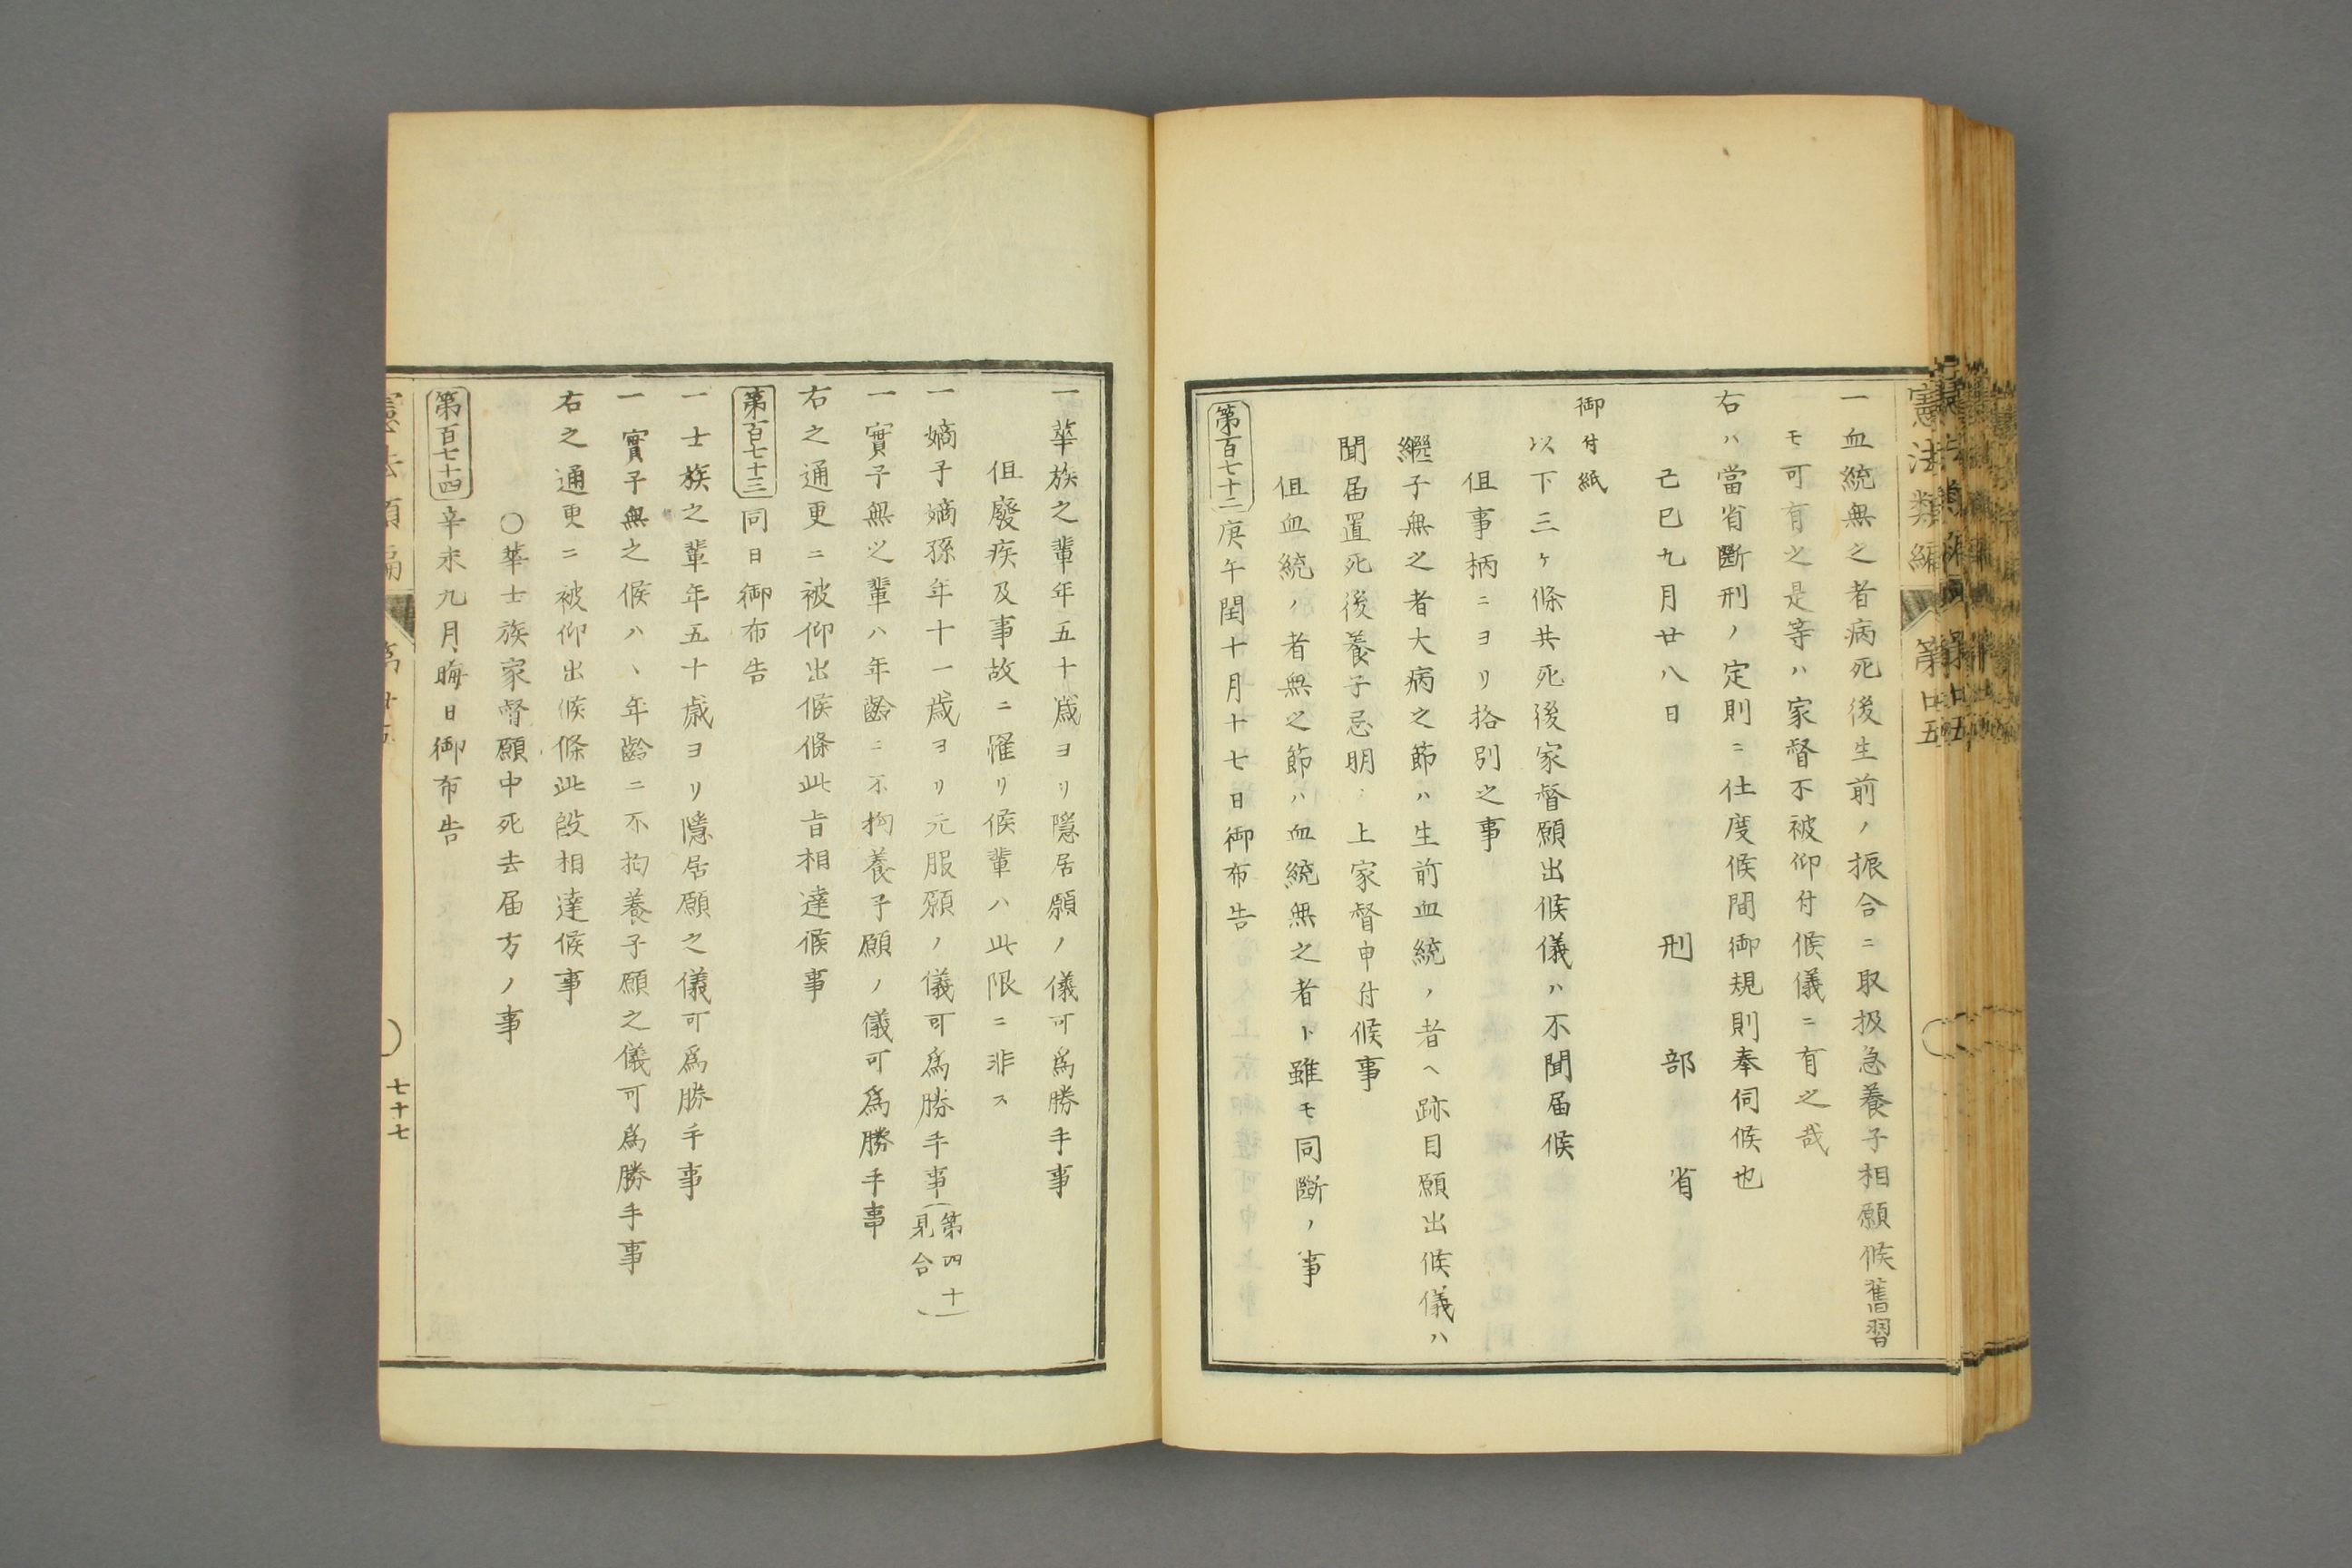 憲法類編 第廿五
一血統無之者病死後生前ノ振合ニ取扱急養子相願候舊習
モ可有之是等ハ家督不被仰付候儀ニ有之哉
右ハ當省斷刑ノ定則ニ仕度候間御規則奉伺候也
己巳九月廿八日 刑部省
御付紙
以下三ヶ條共死後家督願出候儀ハ不聞届候
但事柄ニヨリ挌別之事
繼子無之者大病之節ハ生前血統ノ者ヘ跡目願出候儀ハ
聞届置死後養子忌明上家督申付候事
但血統ノ者無之節ハ血統無之者ト雖モ同斷ノ事
第百七十二庚午閏十月十七日御布告
一華族之輩年五十歳ヨリ隱居願ノ儀可爲勝手事
但廢疾及事故ニ罹リ候輩ハ此限ニ非ス
一嫡子嫡孫年十一歳ヨリ元服願ノ儀可爲勝手事(第四十見合)
一實子無之輩ハ年齡ニ不拘養子願ノ儀可爲勝手事
右之通更ニ被仰出候條此旨相達候事
第百七十三同日御布告
一士族之輩年五十歳ヨリ隱居願之儀可爲勝手事
一實子無之候ハヽ年齡ニ不拘養子願之儀可爲勝手事
右之通更ニ被仰出候條此段相達候事
○華士族家督願中死去届方ノ事
第百七十四辛未九月晦日御布告
七十七